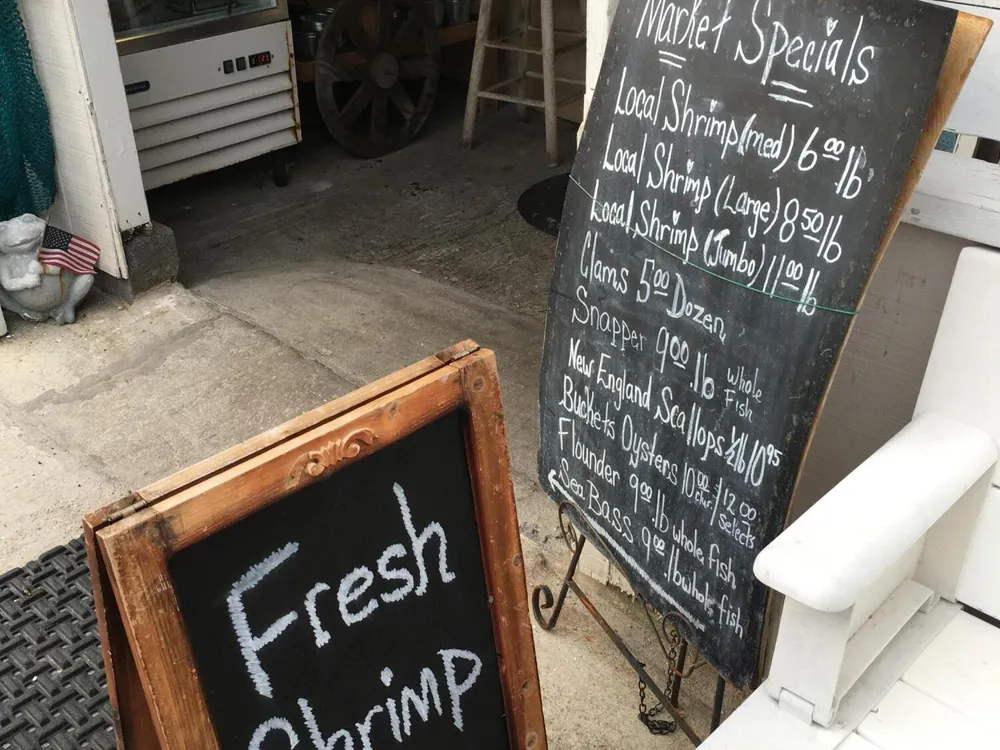 Market Specials
Local Shrimp (med) 6.00 lb
Local Shrimp (Large) 8.50 lb
Local Shrimp (Jumbo) 11.00 lb
Clams 5.00 Dozen
Snapper 9.00 lb whole Fish
New England Scallops 1/2 lb 10.95
Buckets Oysters 10.00 clstr. / $12.00 selects
Flounder 9.00 lb whole fish
Sea Bass 9.00 lb whole fish
Fresh
Shrimp